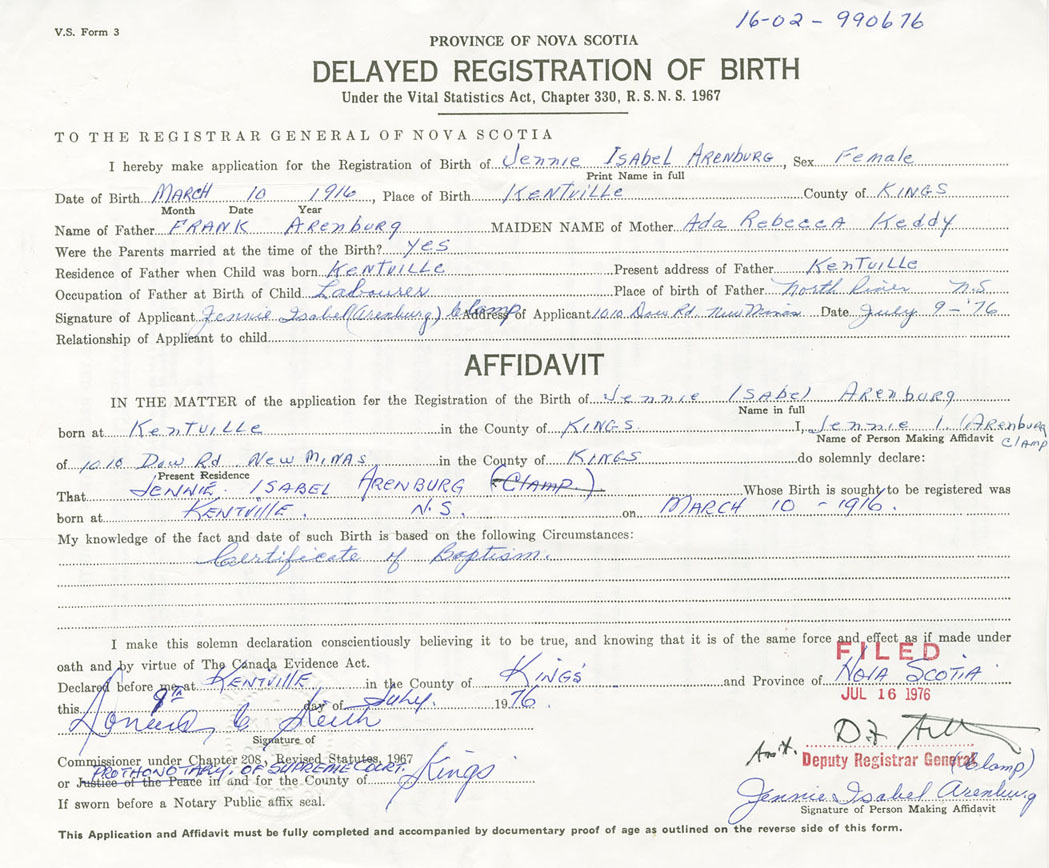 16-02-990676
V.S. Form 3
PROVINCE OF NOVA SCOTIA
DELAYED REGISTRATION OF BIRTH
Under the Vital Statistics Act, Chapter 330, R.S.N.S. 1967
TO THE REGISTRAR GENERAL OF NOVA SCOTIA
I hereby make application for the Registration of Birth of Jennie Isabel Arenburg, Sex Female
Print Name in full
Date of Birth March 10 1916, Place of Birth Kentville County of Kings
Month Date Year
Name of Father Frank Arenburg MAIDEN NAME of Mother Ada Rebecca Keddy
Were the Parents married at the time of the Birth? yes
Residence of Father when Child was born Kentville Present address of Father Kentville
Occupation of Father at Birth of Child Labourer Place of birth of Father North River N.S.
Signature of Applicant Jennie Isabel (Arenburg) Clamp Address of Applicant 1010 Dow Rd. New Minas Date July 9 - '76
Relationship of Applicant to child
AFFIDAVIT
IN THE MATTER of the application for the Registration of the Birth of Jennie Isabel Arenburg
Name in full
born at Kentville in the County of Kings I, Jennie I. (Arenburg
Name of Person Making Affidavit Clamp
of 1010 Dow Rd New Minas in the County of Kings do solemnly declare:
Present Residence
That Jennie Isabel Arenburg (Clamp) Whose Birth is sought to be registered was
born at Kentville N.S. on March 10 - 1916.
My knowledge of the fact and date of such Birth is based on the following Circumstances:
Certificate of Baptism.
I make this solemn declaration conscientiously believing it to be true, and knowing that it is of the same force and effect as if made under
oath and by virtue of The Canada Evidence Act.
FILED
Declared before me at Kentville in the County of King's and Province of Nova Scotia
this 9th day of July. 1976.
JUL 16 1976
Signature of
Commissioner under Chapter 208, Revised Statutes, 1967
Ass't. Deputy Registrar General
PROTHONOTARY, OF SUPREME COURT.
or Justice of the Peace in and for the County of Kings
(Clamp)
Jennie Isabel Arenburg
If sworn before a Notary Public affix seal.
Signature of Person Making Affidavit
This Application and Affidavit must be fully completed and accompanied by documentary proof of age as outlined on the reverse side of this form.